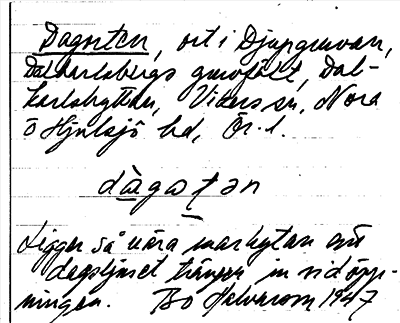 Dagorten, ort i Djupgruvan,
Dalkarlsbergs gruvfält, Dal-
karlshyttan, Vikers sn, Nora
o Hjulsjö bd, Ör. l.
dàgaṭən
Ligger så nära markytan att
dagsljuset tränger in vid öpp-
ningen. Bo Halvarson 1947